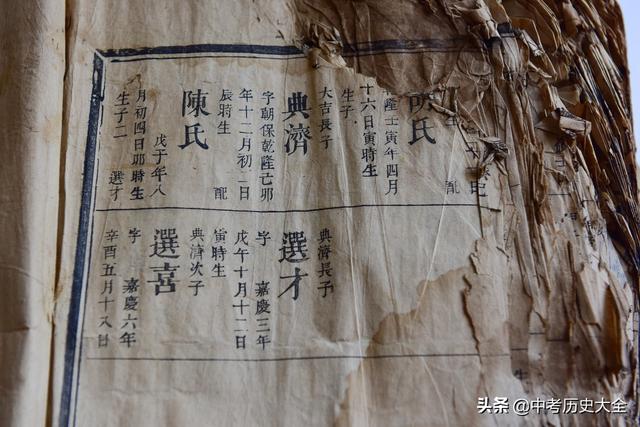 配
氏
隆壬寅年四月
十六日寅時生
生子
大吉長子
典濟
字朝保乾隆亡卯
年十二月初一日
辰時生 配
陳氏
戊子年八
月初四日卯時生
生子二 選才
典濟長子
選才
字 嘉慶三年
戊午十月十二日
寅時生
典濟次子
選喜
字 嘉慶六年
辛酉五月十八日
生
头条 @中考历史大全